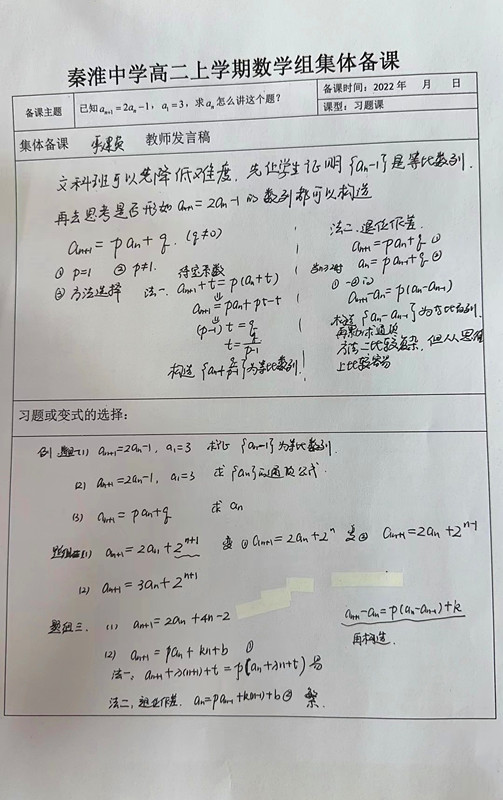 秦淮中学高二上学期数学组集体备课
备课主题
已知 aₙ₊₁=2aₙ-1， a₁=3，求 aₙ 怎么讲这个题?
备课时间：2022 年 月 日
课型：习题课
集体备课 教师发言稿
文科班可以先降低难度，先让学生证明{aₙ-1}是等比数列.
再去思考是否形如 aₙ₊₁=2aₙ-1 的数列都可以构造
aₙ₊₁ = paₙ+q. (q≠0)
① p=1 ② p≠1. 待定系数
③ 方法选择 法一. aₙ₊₁+t=p(aₙ+t)
⇓
aₙ₊₁=paₙ+pt-t
⇓
(p-1)t=q
t=q/(p-1)
构造{aₙ+q/(p-1)}为等比数列.
法二. 退位作差.
aₙ₊₁=paₙ+q ①
当n≥2时 aₙ=paₙ₋₁+q ②
①-②得
aₙ₊₁-aₙ=p(aₙ-aₙ₋₁)
构造{aₙ-aₙ₋₁}为等比数列.
再累加求通项
方法二比较复杂，但从思维
上比较容易
习题或变式的选择：
例 题组一(1) aₙ₊₁=2aₙ-1, a₁=3 求证{aₙ-1}为等比数列.
(2) aₙ₊₁=2aₙ-1, a₁=3 求{aₙ}的通项公式.
(3) aₙ₊₁=paₙ+q 求 aₙ
题组二(1) aₙ₊₁=2aₙ+2ⁿ⁺¹ 变① aₙ₊₁=2aₙ+2ⁿ 变② aₙ₊₁=2aₙ+2ⁿ⁻¹
(2) aₙ₊₁=3aₙ+2ⁿ⁺¹
题组三. (1) aₙ₊₁=2aₙ+4n-2
(2) aₙ₊₁=paₙ+kn+b ①
aₙ₊₁-aₙ=p(aₙ-aₙ₋₁)+k
再构造.
法一: aₙ₊₁+λ(n+1)+t=p(aₙ+λn+t) 易
法二, 退位作差. aₙ=paₙ₋₁+k(n-1)+b ② 繁.